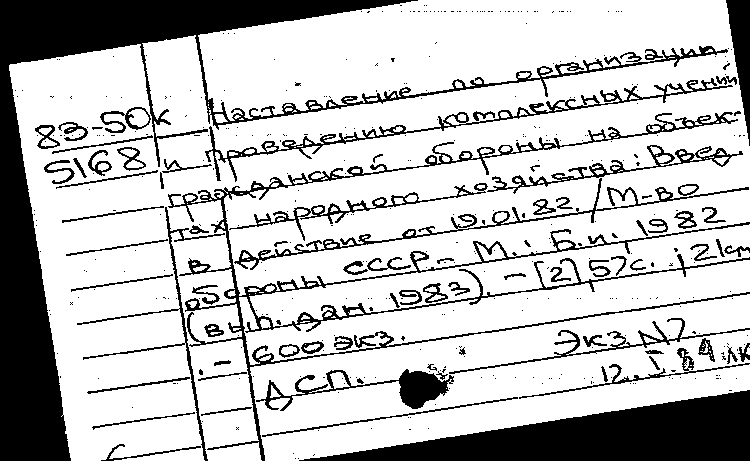 83-50к Наставление по организации
5168 и проведению комплексных учений
гражданской обороны на объек-
тах народного хозяйства: Введ.
в действие от 19.01.82. / М-во
обороны СССР. - М.: Б.и., 1982
(вып. дан. 1983). - [2], 57с.; 21см
. - 600 экз.
ДСП. Экз. N7.
12. I. 84